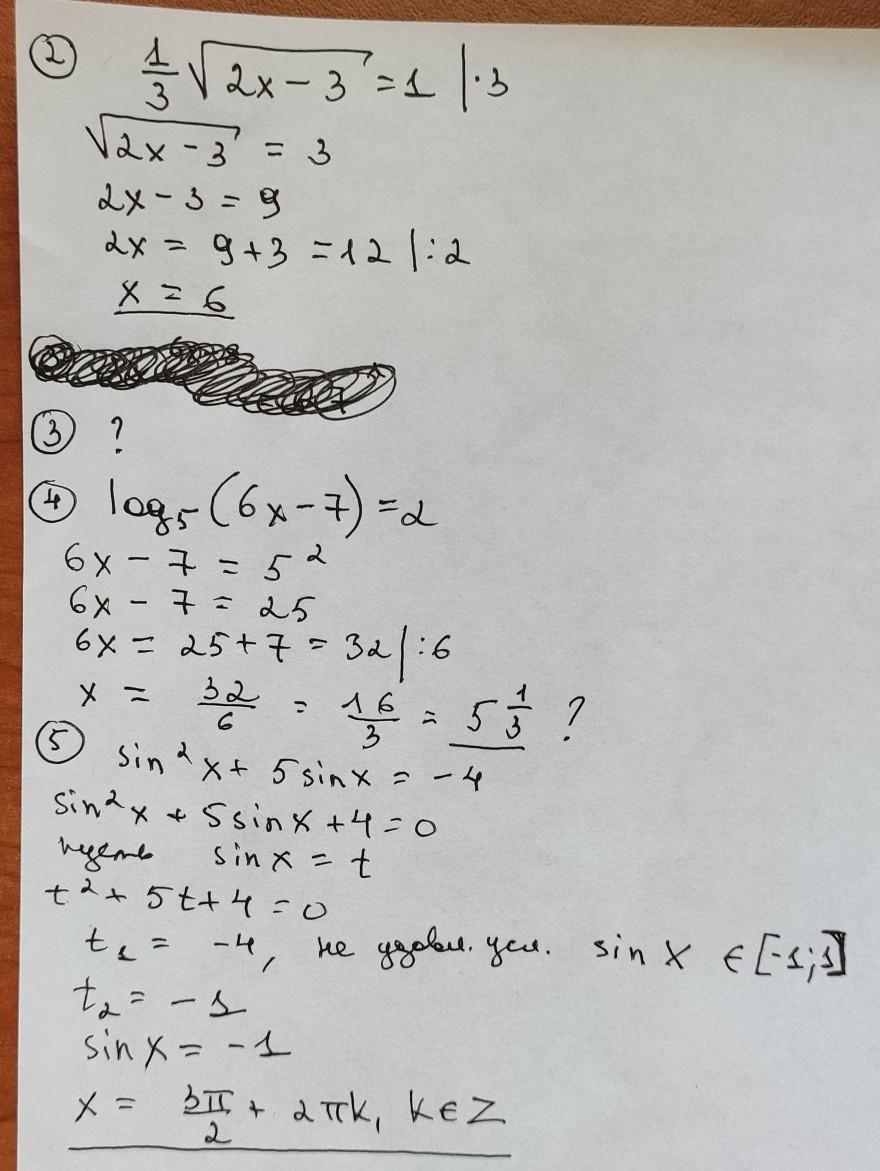 ② 1/3 √(2x − 3) = 1 | · 3
√(2x − 3) = 3
2x − 3 = 9
2x = 9 + 3 = 12 | : 2
x = 6
③ ?
④ log₅ (6x − 7) = 2
6x − 7 = 5²
6x − 7 = 25
6x = 25 + 7 = 32 | : 6
x = 32/6 = 16/3 = 5 1/3 ?
⑤ sin²x + 5 sin x = −4
sin²x + 5 sin x + 4 = 0
пусть sin x = t
t² + 5t + 4 = 0
t₁ = −4, не удовл. усл. sin x ∈ [-1;1]
t₂ = −1
sin x = −1
x = 3π/2 + 2πk, k ∈ Z